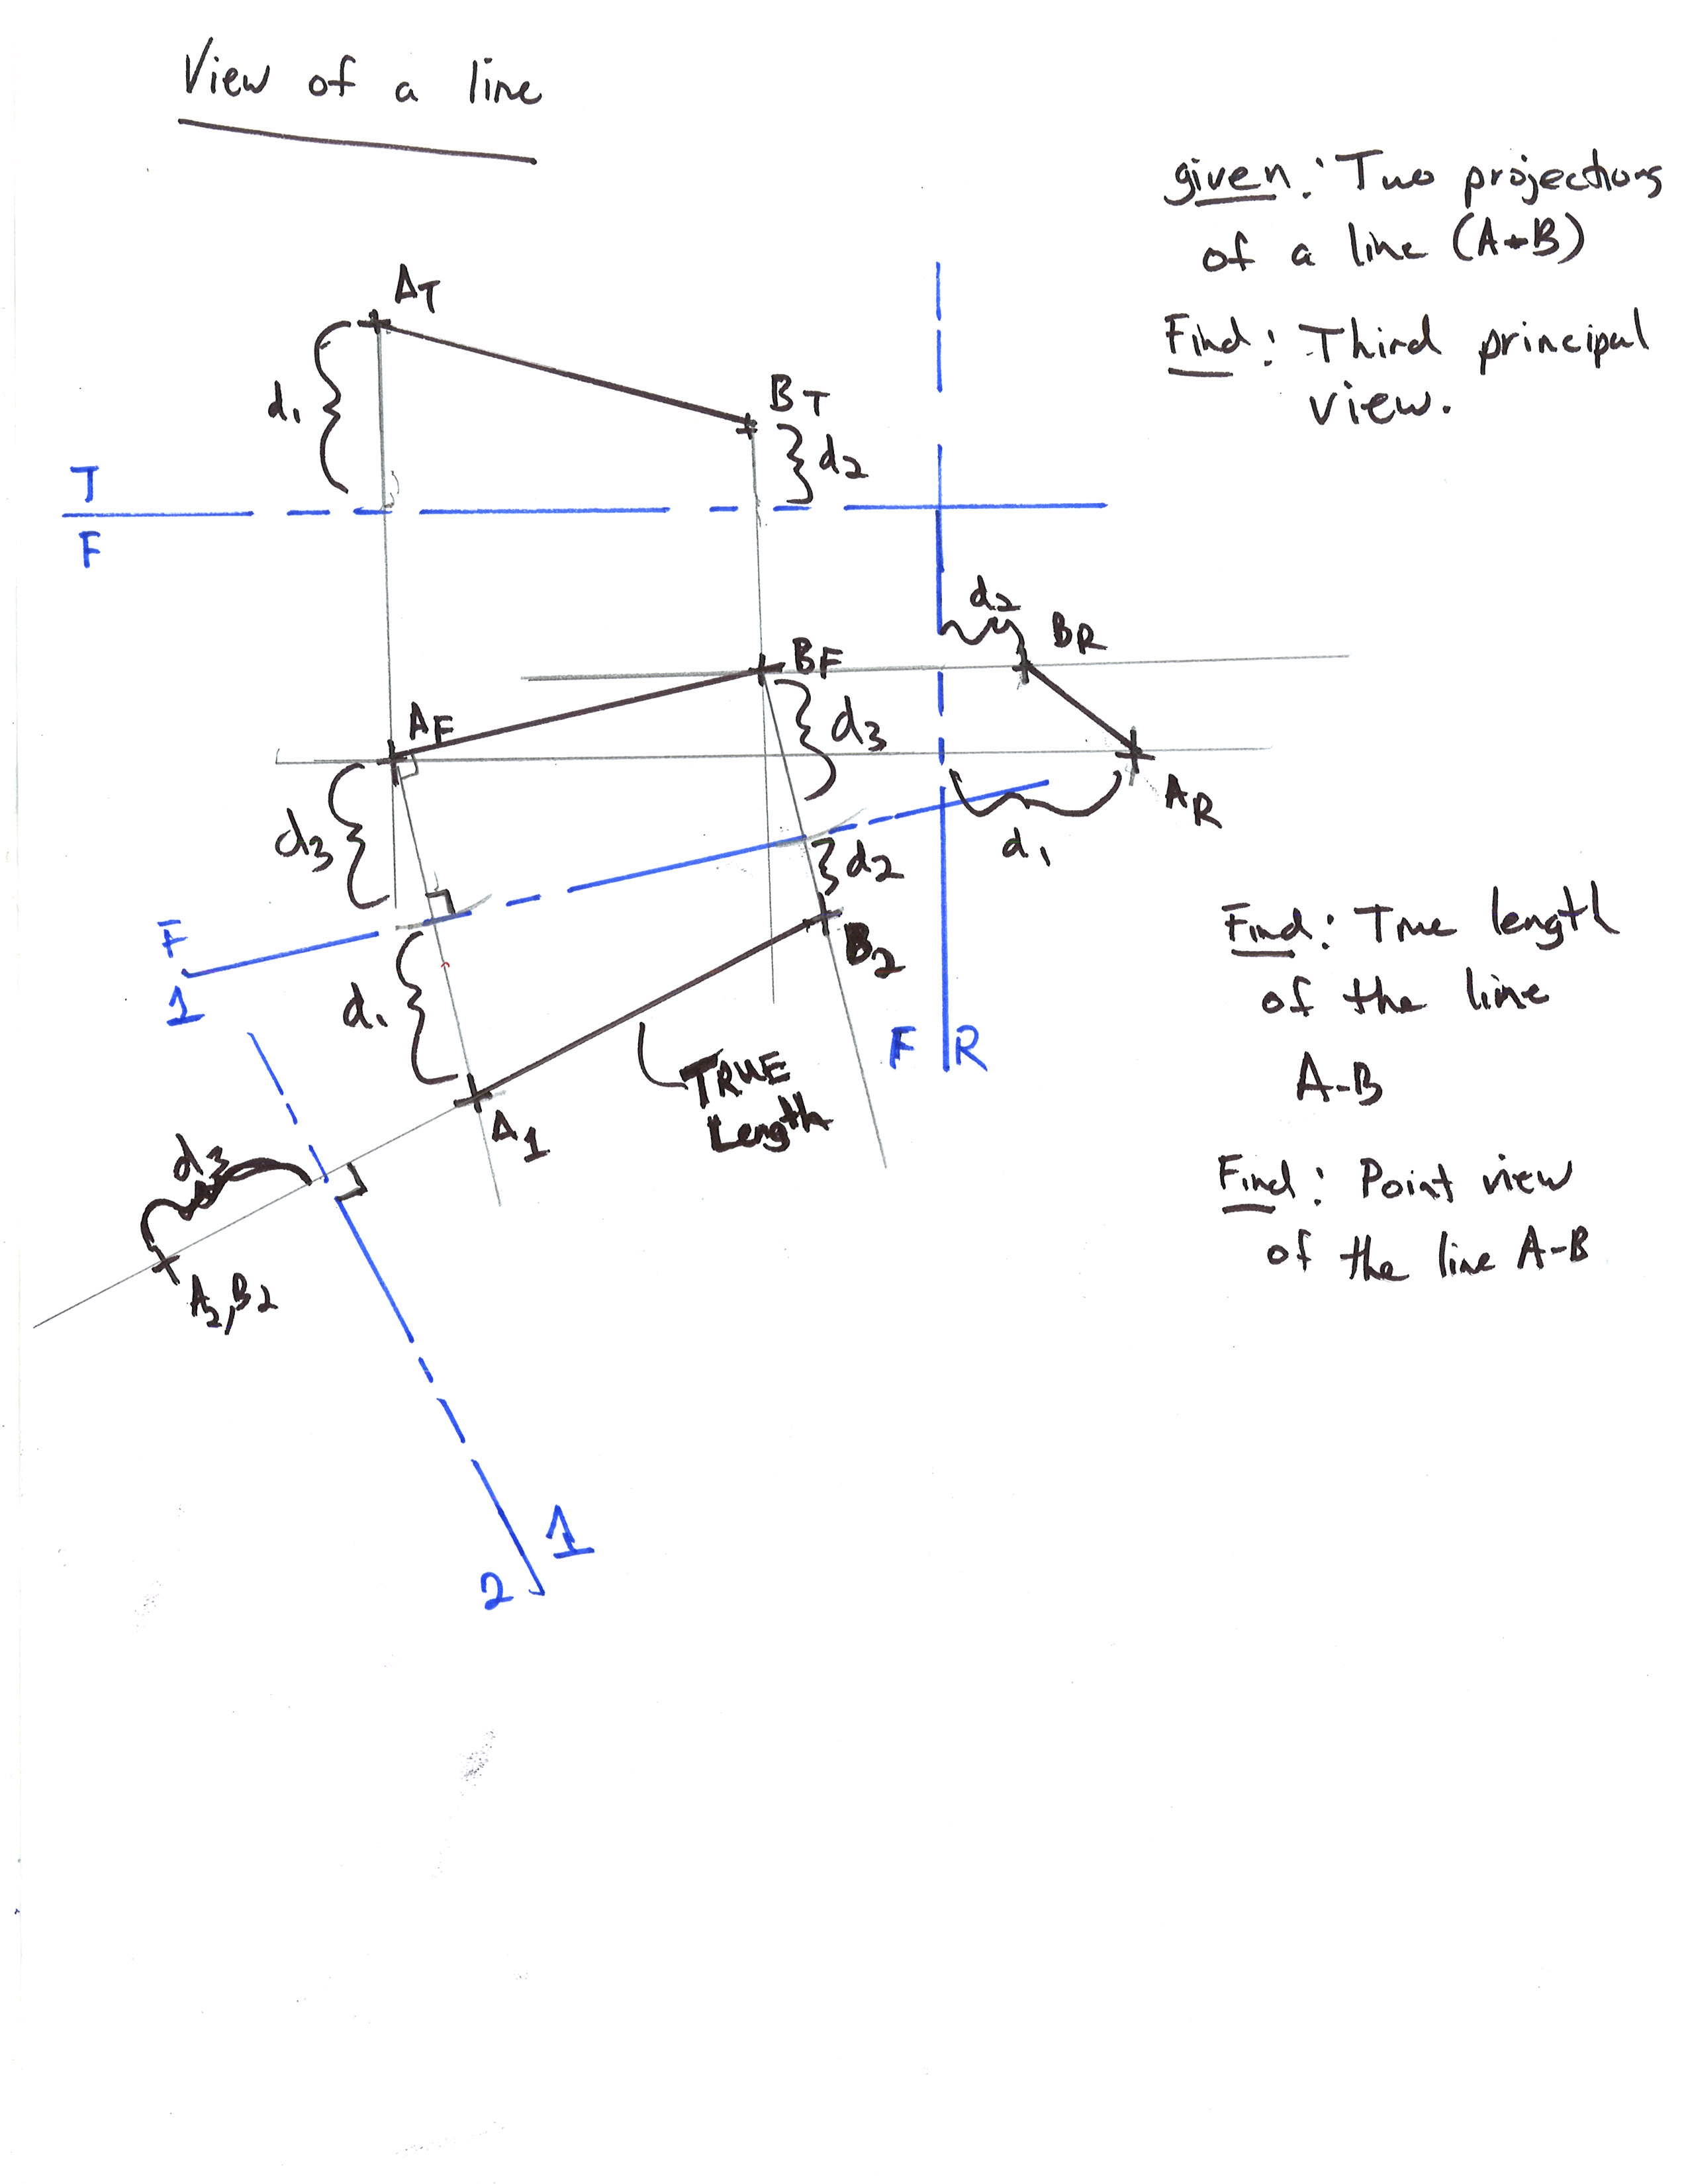 View of a line
given: Two projections
of a line (A+B)
Find: Third principal
view.
AT
BT
d1
d2
T
F
d2
BR
BF
AF
d3
d3
AR
d1
d2
F
1
B2
d1
F R
TRUE
Length
A1
Find: True length
of the line
A-B
d3
A2,B2
Find: Point view
of the line A-B
1
2